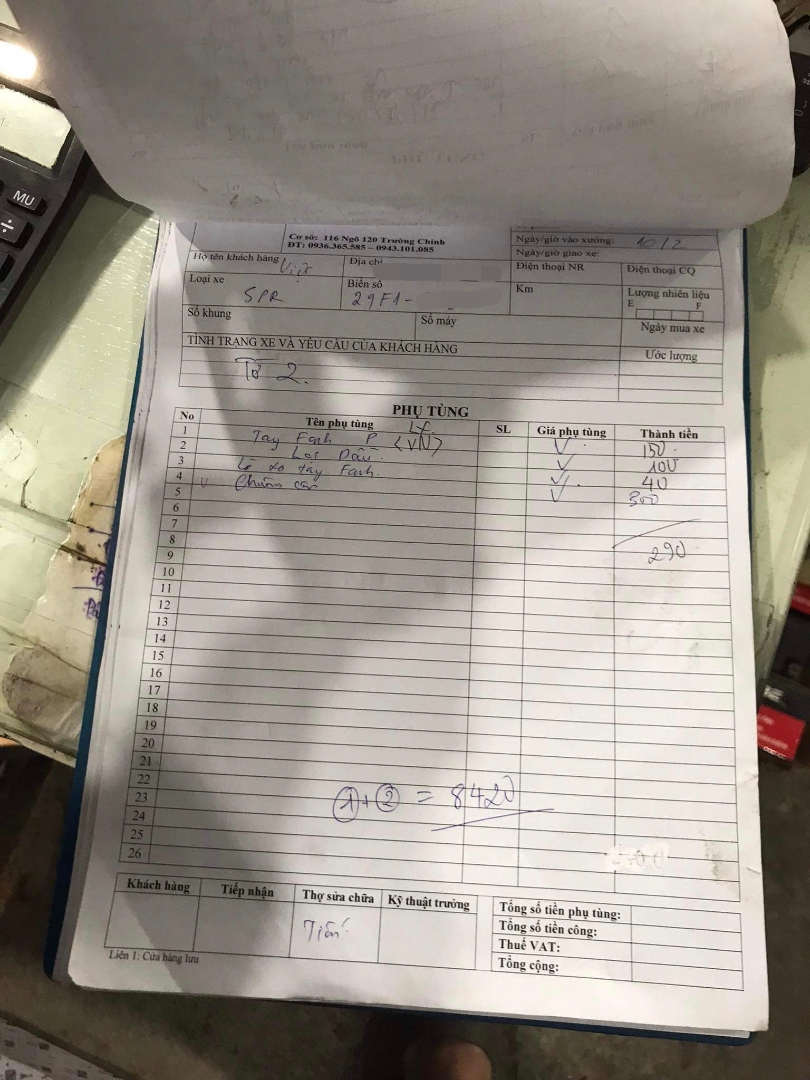 MU
÷
Cơ sở: 116 Ngõ 120 Trường Chinh
ĐT: 0936.365.585 – 0943.101.085
Ngày/giờ vào xưởng: 10/2
Ngày/giờ giao xe:
Họ tên khách hàng Việt Địa chỉ Điện thoại NR Điện thoại CQ
Loại xe SPR Biển số 29F1- Km Lượng nhiên liệu
E F
Số khung Số máy Ngày mua xe
TÌNH TRẠNG XE VÀ YÊU CẦU CỦA KHÁCH HÀNG Ước lượng
Tờ 2.
PHỤ TÙNG
No Tên phụ tùng SL Giá phụ tùng Thành tiền
1 Tay Fanh P (VN) 150
2 Lọc Dầu 100
3 Lò xo tay Fanh 40
4 300
5
6
7
8 290
9
10
11
12
13
14
15
16
17
18
19
20
21
22
23 1 + 2 = 8420
24
25
26
Khách hàng Tiếp nhận Thợ sửa chữa Kỹ thuật trưởng
Tiến
Tổng số tiền phụ tùng:
Tổng số tiền công:
Thuế VAT:
Tổng cộng:
Liên 1: Cửa hàng lưu